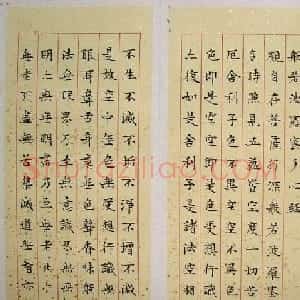 般若波羅蜜多心經
觀自在菩薩行深般若波羅蜜
多時照見五蘊皆空度一切苦
厄舍利子色不異空空不異色
色即是空空即是色受想行識
亦復如是舍利子是諸法空相
不生不滅不垢不淨不增不減
是故空中無色無受想行識無
眼耳鼻舌身意無色聲香味觸
法無眼界乃至無意識界無無
明亦無無明盡乃至無老死亦
無老死盡無苦集滅道無智亦